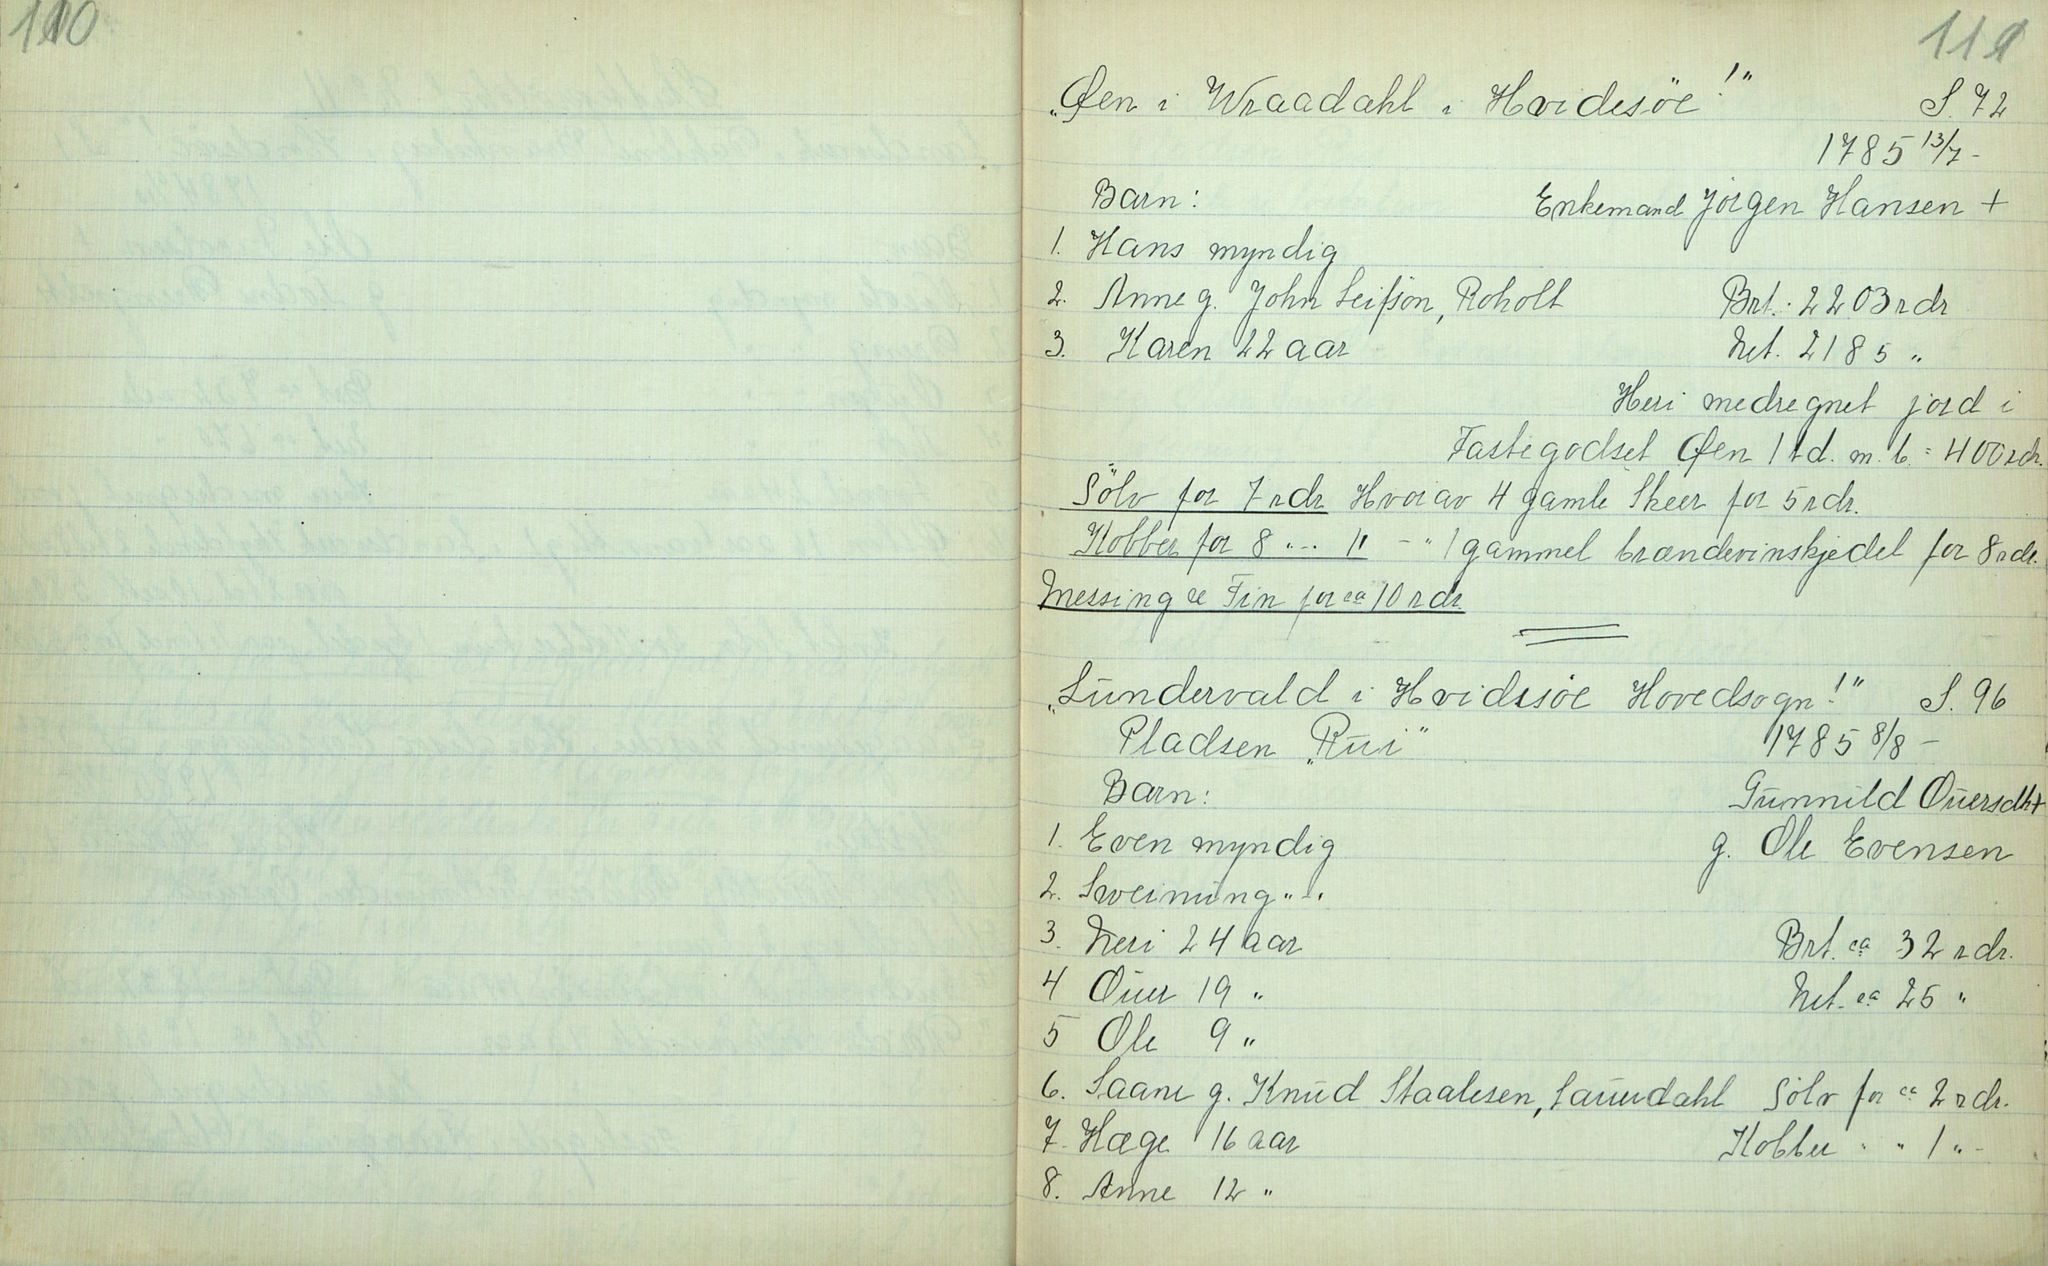 110
111
„Øen i Wraadahl i Hvidesöe!" S. 72
1785 13/7 -
Barn: Enkemand Jörgen Hansen +
1. Hans myndig
2. Anne g. John Leifsön, Roholt Brt. 2203 rdr
3. Karen 22 aar Net. 2185 "
Heri medregnet jord i
Fastegodset Øen 1 td. m. b. = 400 rdr.
Sölv for 7 rdr Hvorav 4 gamle Skeer for 5 rdr.
Kobber for 8 " - " - " 1 gammel brændevinskjedel for 8 rdr.
Messing & Tin for ca 10 rdr.
„Sundervald i Hvidesöe Hovedsogn!" S. 96
Pladsen „Rui" 1785 8/8 -
Barn: Gunnild Ouersdtr +
1. Even myndig g. Ole Evensen
2. Sveinung " - "
3. Neri 24 aar Brt. ca 32 rdr.
4 Ouer 19 " Net. ca 25 "
5 Ole 9 "
6. Saane g. Knud Staalesen, Sauerdahl Sölv for ca 2 rdr.
7. Hæge 16 aar Kobber " " 1 " -
8. Anne 12 "